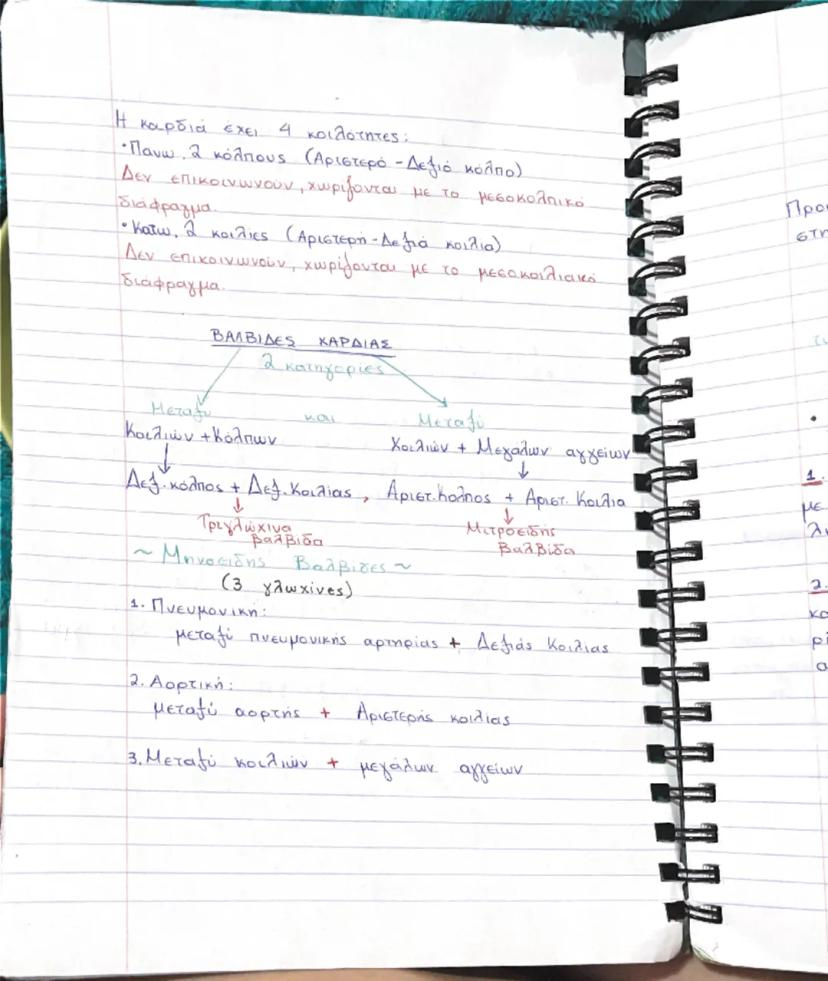 Η καρδιά έχει 4 κοιλότητες:
•Πανω, 2 κόλπους (Αριστερό - Δεξιό κόλπο)
Δεν επικοινωνούν, χωρίζονται με το μεσοκολπικό
διάφραγμα.
•Κατω, 2 κοιλιες (Αριστερή - Δεξιά κοιλια)
Δεν επικοινωνούν, χωρίζονται με το μεσοκοιλιακό
διάφραγμα.
ΒΑΛΒΙΔΕΣ ΚΑΡΔΙΑΣ
2 κατηγορίες
Μεταξύ και Μεταξύ
Κοιλιών + Κόλπων Κοιλιών + Μεγάλων αγγείων
Δεξ. κόλπος + Δεξ. Κοιλιας, Αριστ. κολπος + Αριστ. Κοιλια
Τριγλώχινα Μιτροειδής
βαλβίδα Βαλβίδα
~ Μηνοειδής Βαλβίδες ~
(3 γλωχίνες)
1. Πνευμονική:
μεταξύ πνευμονικής αρτηρίας + Δεξιάς Κοιλιας
2. Αορτική:
μεταξύ αορτής + Αριστερής κοιλιας
3. Μεταξύ κοιλιών + μεγάλων αγγείων
1.
2.